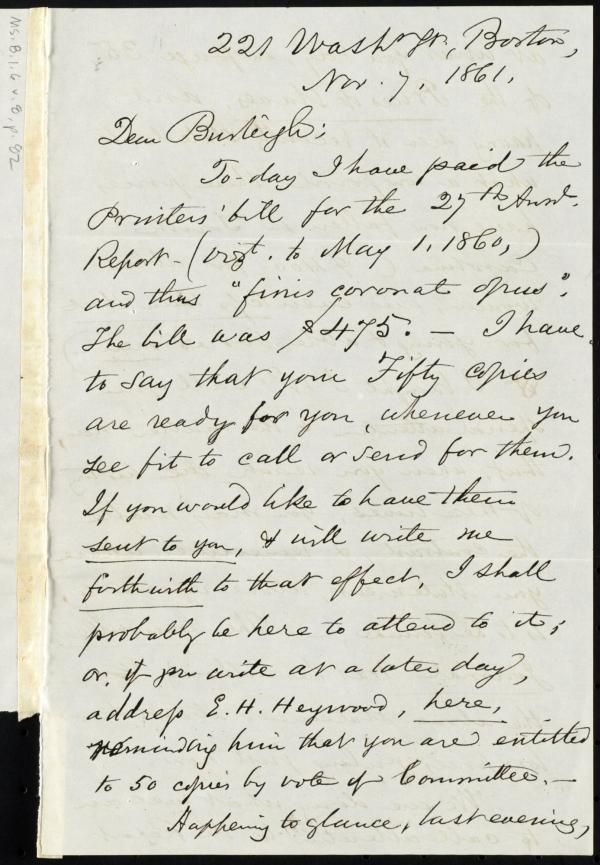 MS. B.1.6 v. 8, p. 82
221 Washn. St., Boston,
Nov. 7, 1861.
Dear Burleigh:
To-day I have paid the
Printers' bill for the 27th Annl.
Report - ( to May 1, 1860,)
and thus "finis coronat opus".
The bill was $475. — I have
to say that your Fifty copies
are ready for you, whenever you
see fit to call or send for them.
If you would like to have them
sent to you, & will write me
forthwith to that effect, I shall
probably be here to attend to it;
or, if you write at a later day,
address E. H. Heywood, here,
reminding him that you are entitled
to 50 copies by vote of Committee. —
Happening to glance, last evening,